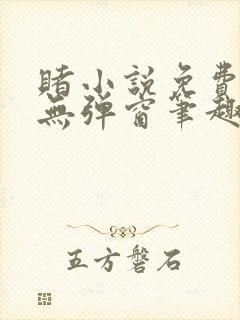 賭小説免費
無弹窗筆趣
五方磐石